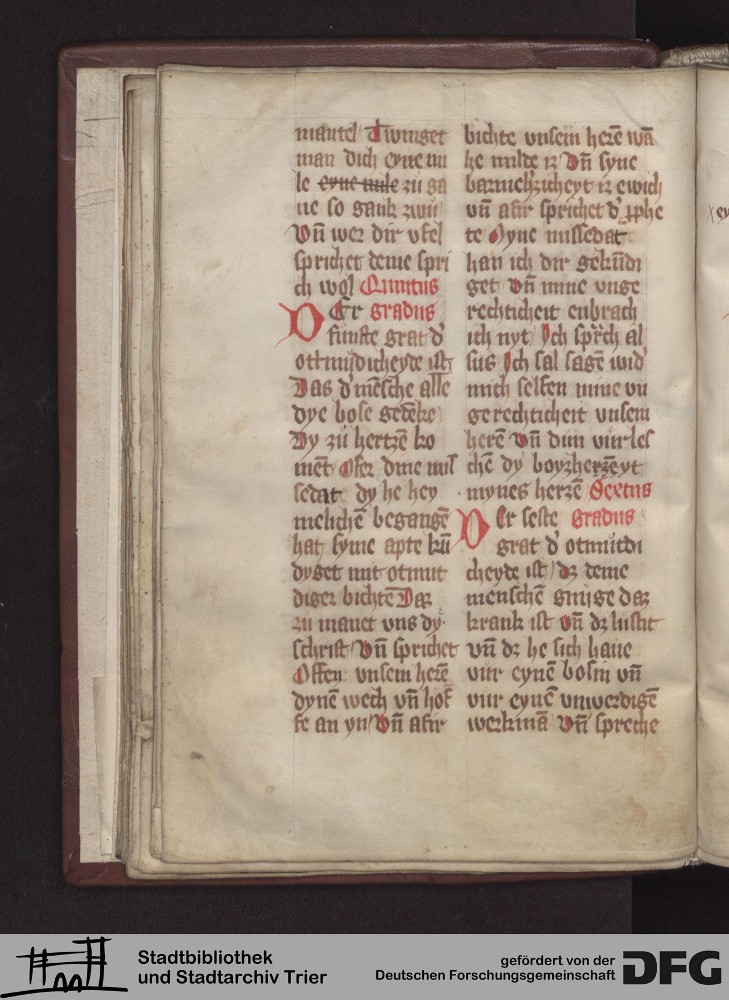 mantel Twinget
man dich eyne mi
le eyne mile zu ga
ne so gank zwu
Vn̄ wer dir vbel
sprichet deme spri
ch wol Quintus
DEr gradus
funfte grat d'
otmudicheyde ist
Das d' mēsche alle
dye bose gedēke
Dy zu hertzē ko
mēt Ofer dine mis
sedat dy he hey
melichē begangē
hat syme apte kū
dyget mit otmut
diger bichtē Daz
zu manet vns dy
schrift Vn̄ sprichet
Offen vnsem herē
dynē wech vn̄ hof
fe an yn Vn̄ afir
bichte vnsem herē wā
he milde iz Vn̄ syne
barmehzicheyt iz ewich
vn̄ afir sprichet d' ꝓphe
te Myne missedat
han ich dir gekūdi
get vn̄ mine vnge
rechticheit enbrach
ich nyt Ich sprach al
sus Ich sal sagē wid'
mich selfen mine vn
gerechticheit vnsem
herē Vn̄ dun virles
chē dy boyzherzēyt
mynes herzē Sextus
DEr seste gradus
grat d' otmutdi
cheyde ist dz deme
menschē gnuge daz
krank ist Vn̄ dz luscht
vn̄ dz he sich haue
vur eynē bosin vn̄
vur eynē vnwerdigē
werkmā Vn̄ spreche
xey
Stadtbibliothek
und Stadtarchiv Trier
gefördert von der
Deutschen Forschungsgemeinschaft DFG